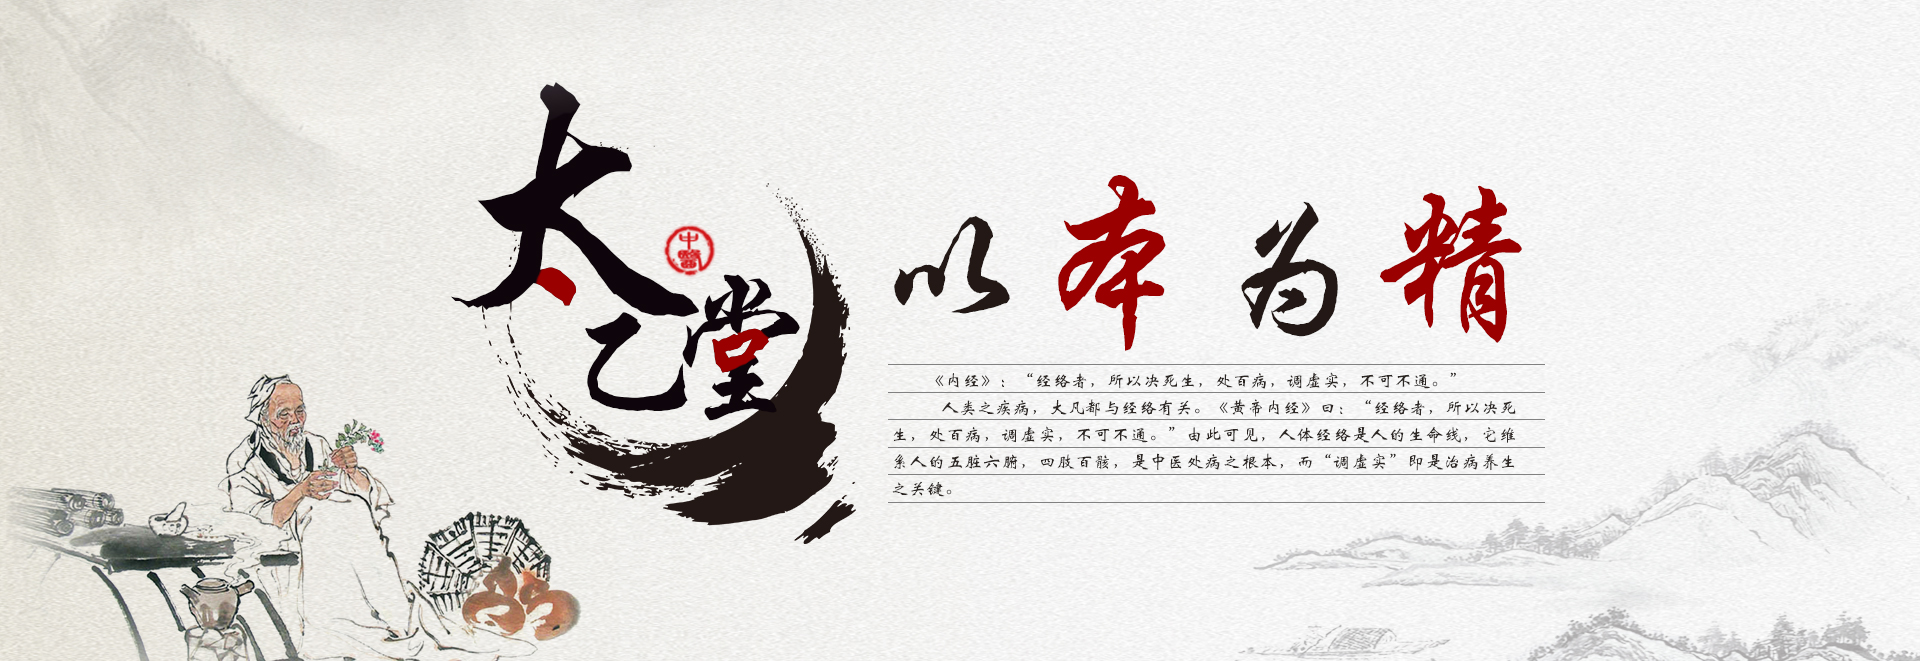 太乙堂
中醫
以本为精
《内经》：“经络者，所以决死生，处百病，调虚实，不可不通。”
人类之疾病，大凡都与经络有关。《黄帝内经》曰：“经络者，所以决死
生，处百病，调虚实，不可不通。”由此可见，人体经络是人的生命线，它维
系人的五脏六腑，四肢百骸，是中医处病之根本，而“调虚实”即是治病养生
之关键。